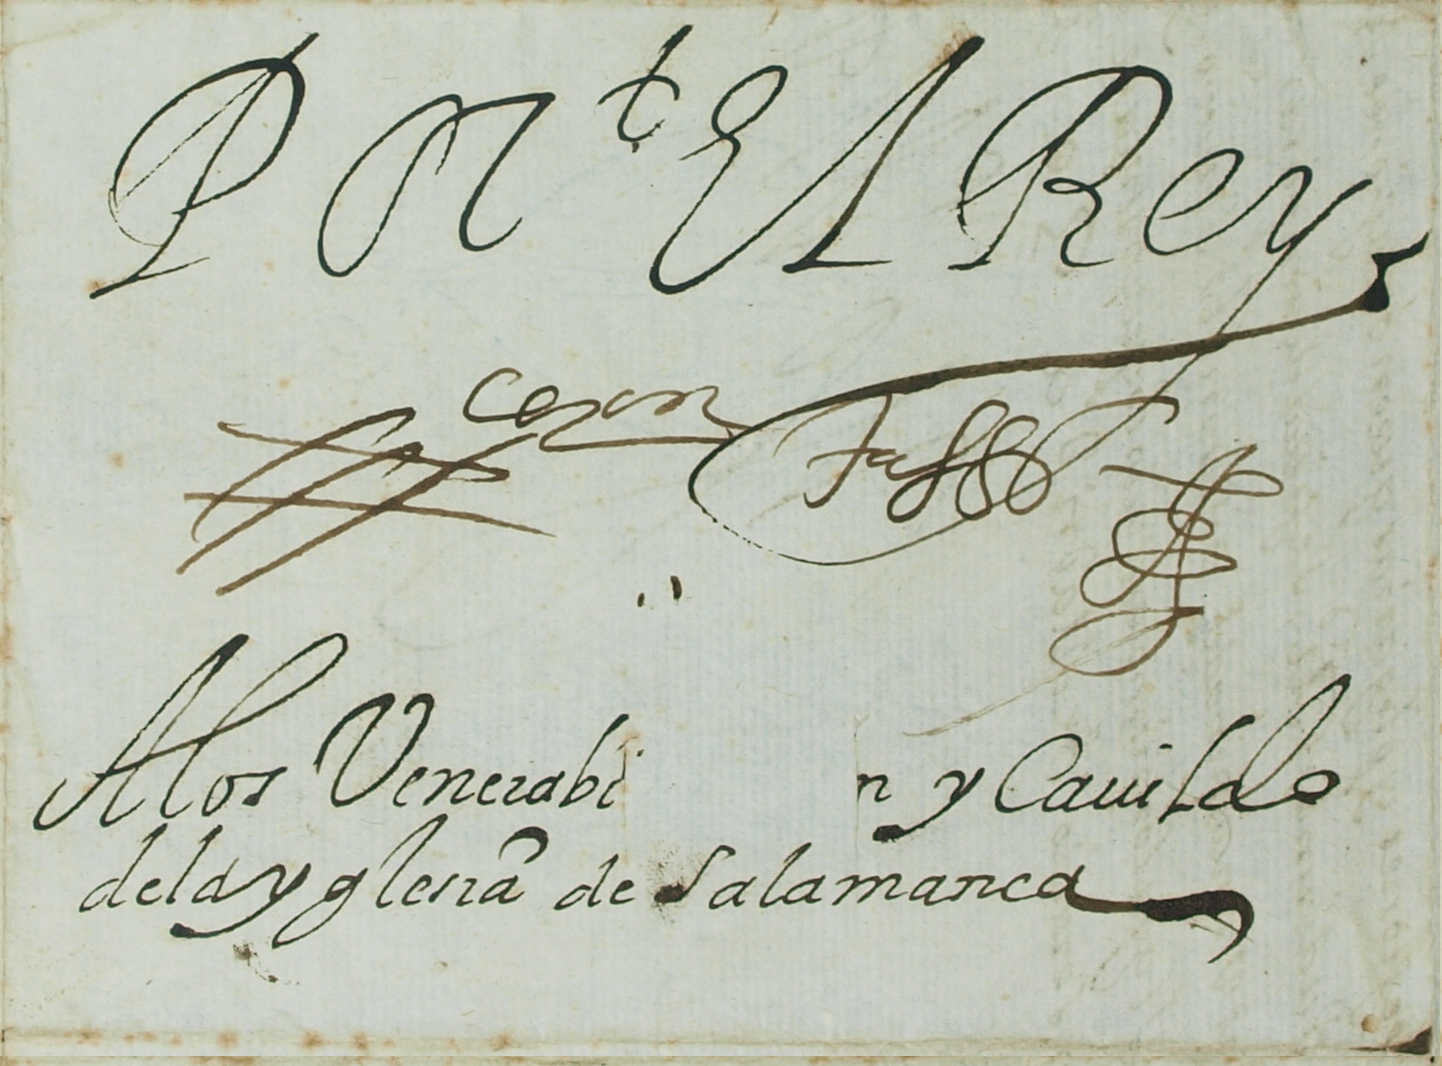 Por El Rey
A los Venerabl n y Cauildo
de la yglesia de Salamanca